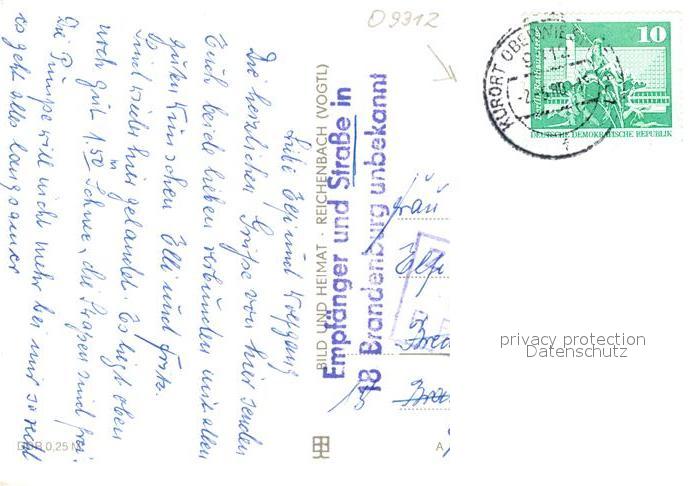 Liebe Elli und Wolfgang
Die herzlichen Grüße von hier senden
Euch beide lieben verbunden mit allen
guten Wünschen Elli und
sind wieder hier gelandet. Es liegt oben
noch gut 1,50 m Schnee, die Straßen sind frei.
Die Pumpe will nicht mehr bei mir so recht
es geht alles langsamer
BILD UND HEIMAT REICHENBACH (VOGTL)
Empfänger und Straße in
18 Brandenburg unbekannt
Frau
18
DDR 0,25 M
A
09312
KURORT OBERWIESENTHAL
10
DEUTSCHE DEMOKRATISCHE REPUBLIK
privacy protection
Datenschutz